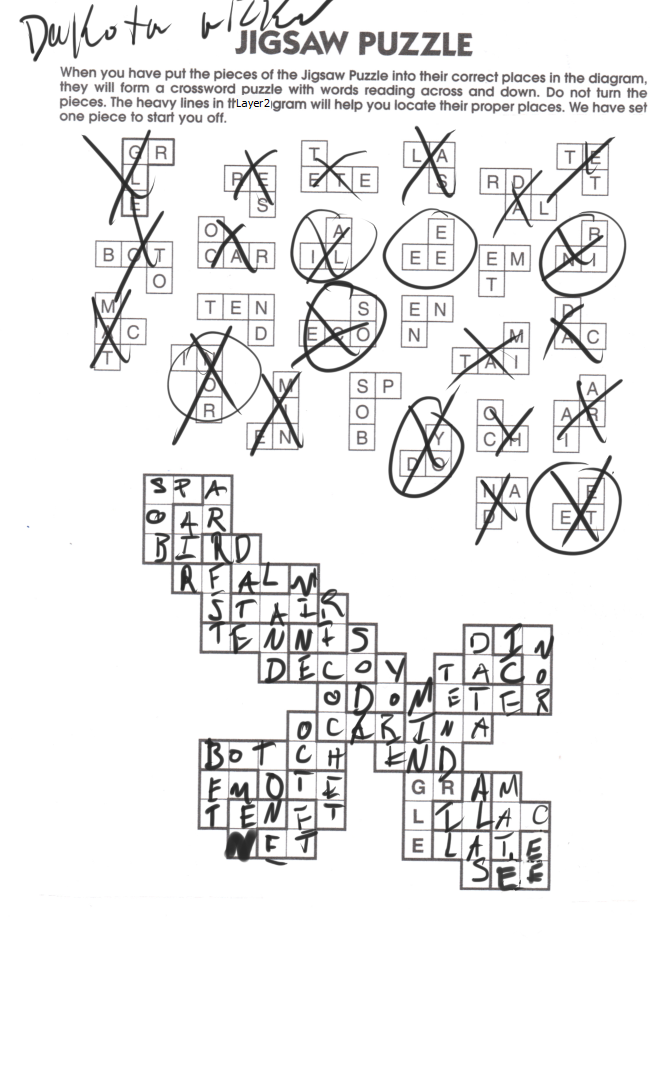 Dakota
JIGSAW PUZZLE
When you have put the pieces of the Jigsaw Puzzle into their correct places in the diagram,
they will form a crossword puzzle with words reading across and down. Do not turn the
pieces. The heavy lines in tLayer2igram will help you locate their proper places. We have set
one piece to start you off.
G R
L
E
R E
S
T
E T E
L A
S
R D
A L
T E
T
B O T
O
O
C A R
A
I L
E
E E
E M
T
R
N I
M
A C
T
T E N
D
S
E C O
E N
N
M
T A I
D
A C
I N
O
R
M
I
E N
S P
O
B
Y
D O
O
C H
A
A R
I
N A
D
E
E T
S P A
O A R
B I R D
R E A L N
S T A I R
T E N N I S
D I N
D E C O Y T A C O
O D O M E T E R
O C A R I N A
B O T C H E N D
E M O T E G R A M
T E N E T L I L A C
N E T E L A T E
S E E